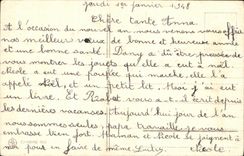 Jeudi 1er janvier 1948
Chère tante Anna.
A l'occasion du nouvel an, nous venons vous offrir
nos meilleurs vœux de bonne et heureuse année
et une bonne santé. Danny a dit être pressée de
vous montrer les jouets qu'elle a eut à noël
Nicole a eut une poupée qui marche, elle l'a
appelé et un petit lit. Moi j'ai eut
un livre. Et a t'il écrit depuis
les dernières vacances. Aujourd'hui jour de l'an
nous sommes seules papa travaille, je vous
embrasse bien fort. Maman et Nicole se joignent à
moi pour en faire de même
Nicole